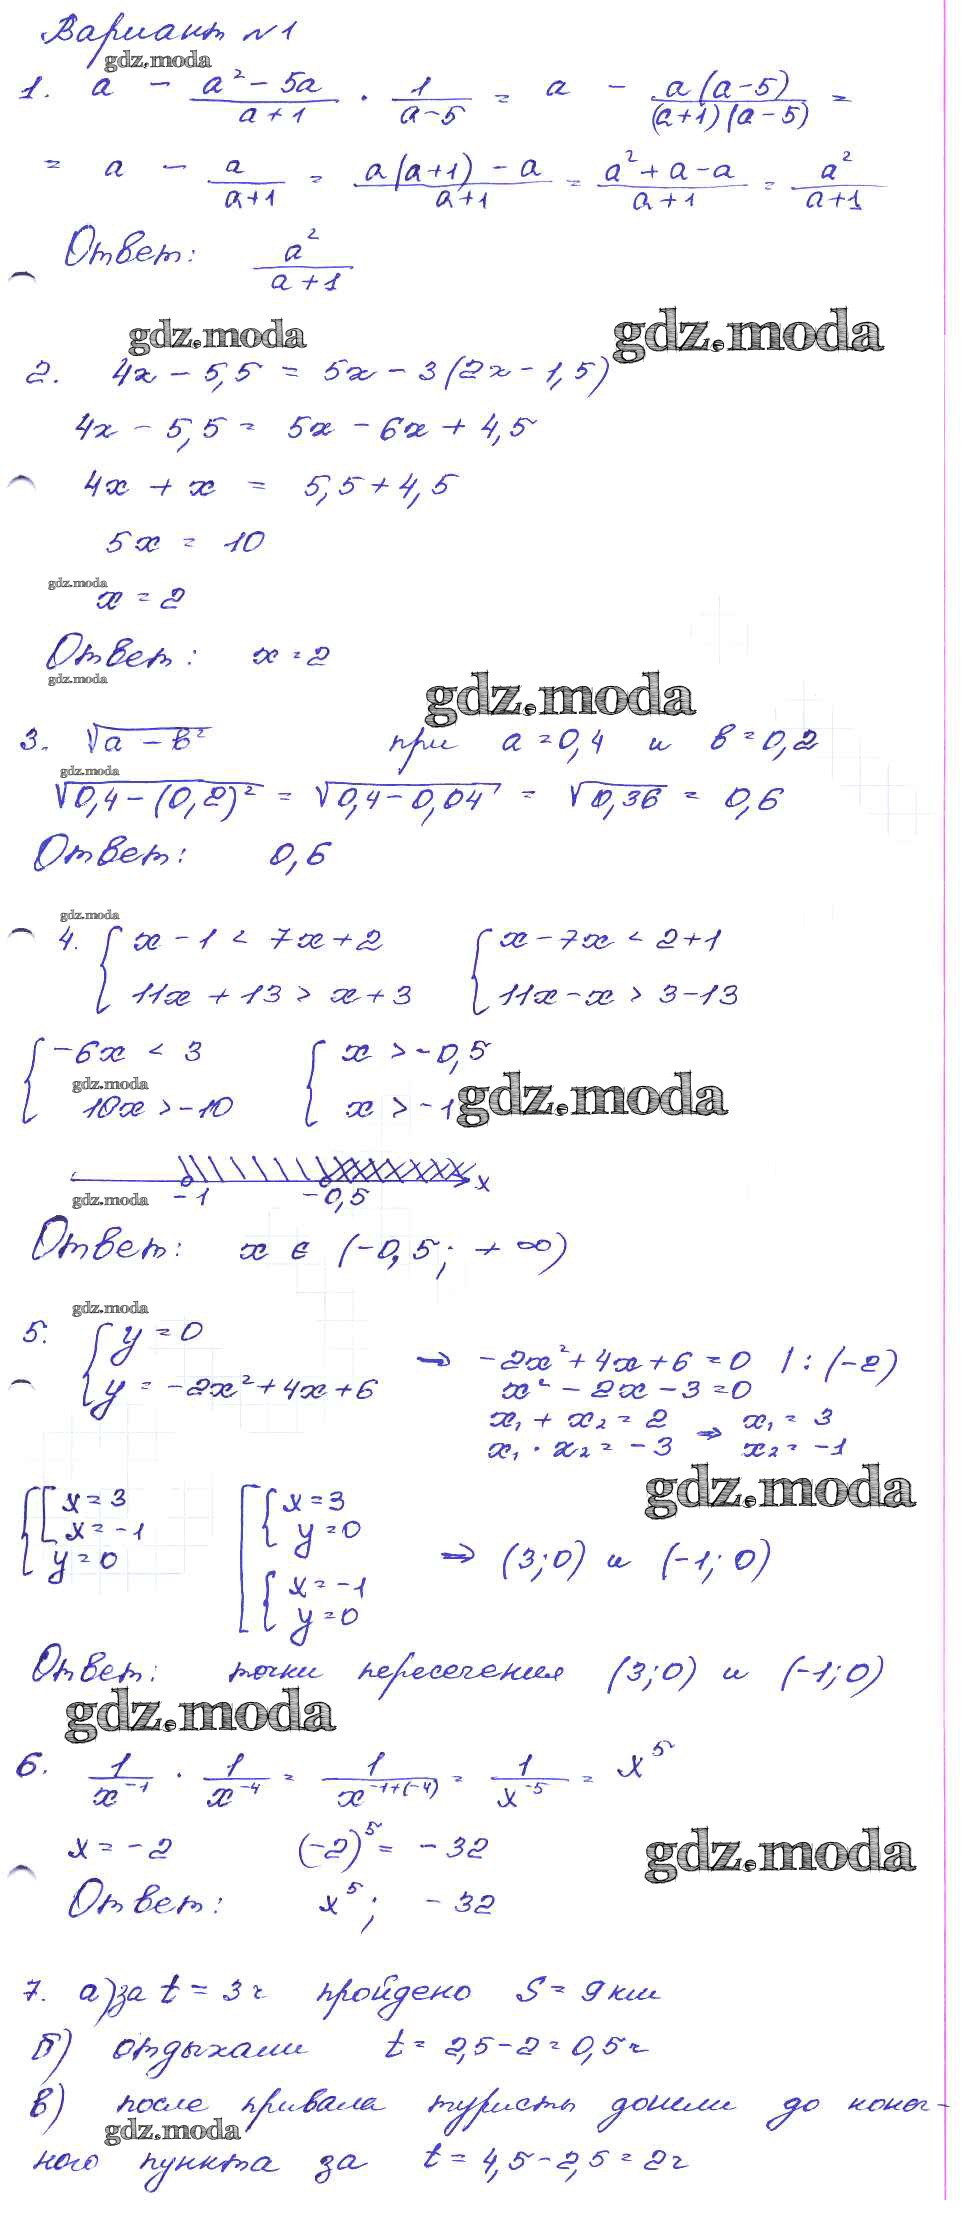 Вариант №1
gdz.moda
1. a - (a² - 5a)/(a+1) · 1/(a-5) = a - a(a-5)/((a+1)(a-5)) =
= a - a/(a+1) = (a(a+1) - a)/(a+1) = (a² + a - a)/(a+1) = a²/(a+1)
Ответ: a²/(a+1)
gdz.moda gdz.moda
2. 4x - 5,5 = 5x - 3(2x - 1,5)
4x - 5,5 = 5x - 6x + 4,5
4x + x = 5,5 + 4,5
5x = 10
gdz.moda
x = 2
Ответ: x = 2
gdz.moda
gdz.moda
3. √(a - b²) при a = 0,4 и b = 0,2
gdz.moda
√(0,4 - (0,2)²) = √(0,4 - 0,04) = √0,36 = 0,6
Ответ: 0,6
gdz.moda
4. { x - 1 < 7x + 2 { x - 7x < 2 + 1
11x + 13 > x + 3 11x - x > 3 - 13
{ -6x < 3 { x > -0,5
gdz.moda gdz.moda
10x > -10 x > -1
x
gdz.moda -1 -0,5
Ответ: x ∈ (-0,5; +∞)
gdz.moda
5. { y = 0
y = -2x² + 4x + 6 ⇒ -2x² + 4x + 6 = 0 | : (-2)
x² - 2x - 3 = 0
x₁ + x₂ = 2 ⇒ x₁ = 3
x₁ · x₂ = -3 x₂ = -1
gdz.moda
{ [ x = 3 [ { x = 3
x = -1 y = 0
y = 0 ⇒ (3;0) и (-1; 0)
{ x = -1
y = 0
Ответ: точки пересечения (3;0) и (-1;0)
gdz.moda
6. 1/x⁻¹ · 1/x⁻⁴ = 1/x⁻¹⁺⁽⁻⁴⁾ = 1/x⁻⁵ = x⁵
x = -2 (-2)⁵ = -32
gdz.moda
Ответ: x⁵; -32
7. а) за t = 3 ч пройдено S = 9 км
б) отдыхали t = 2,5 - 2 = 0,5 ч
в) после привала туристы дошли до конеч-
gdz.moda
ного пункта за t = 4,5 - 2,5 = 2 ч